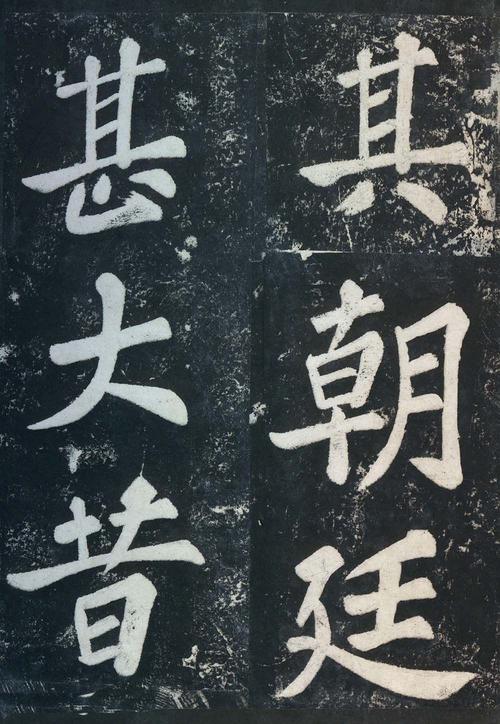 其朝廷
甚大昔